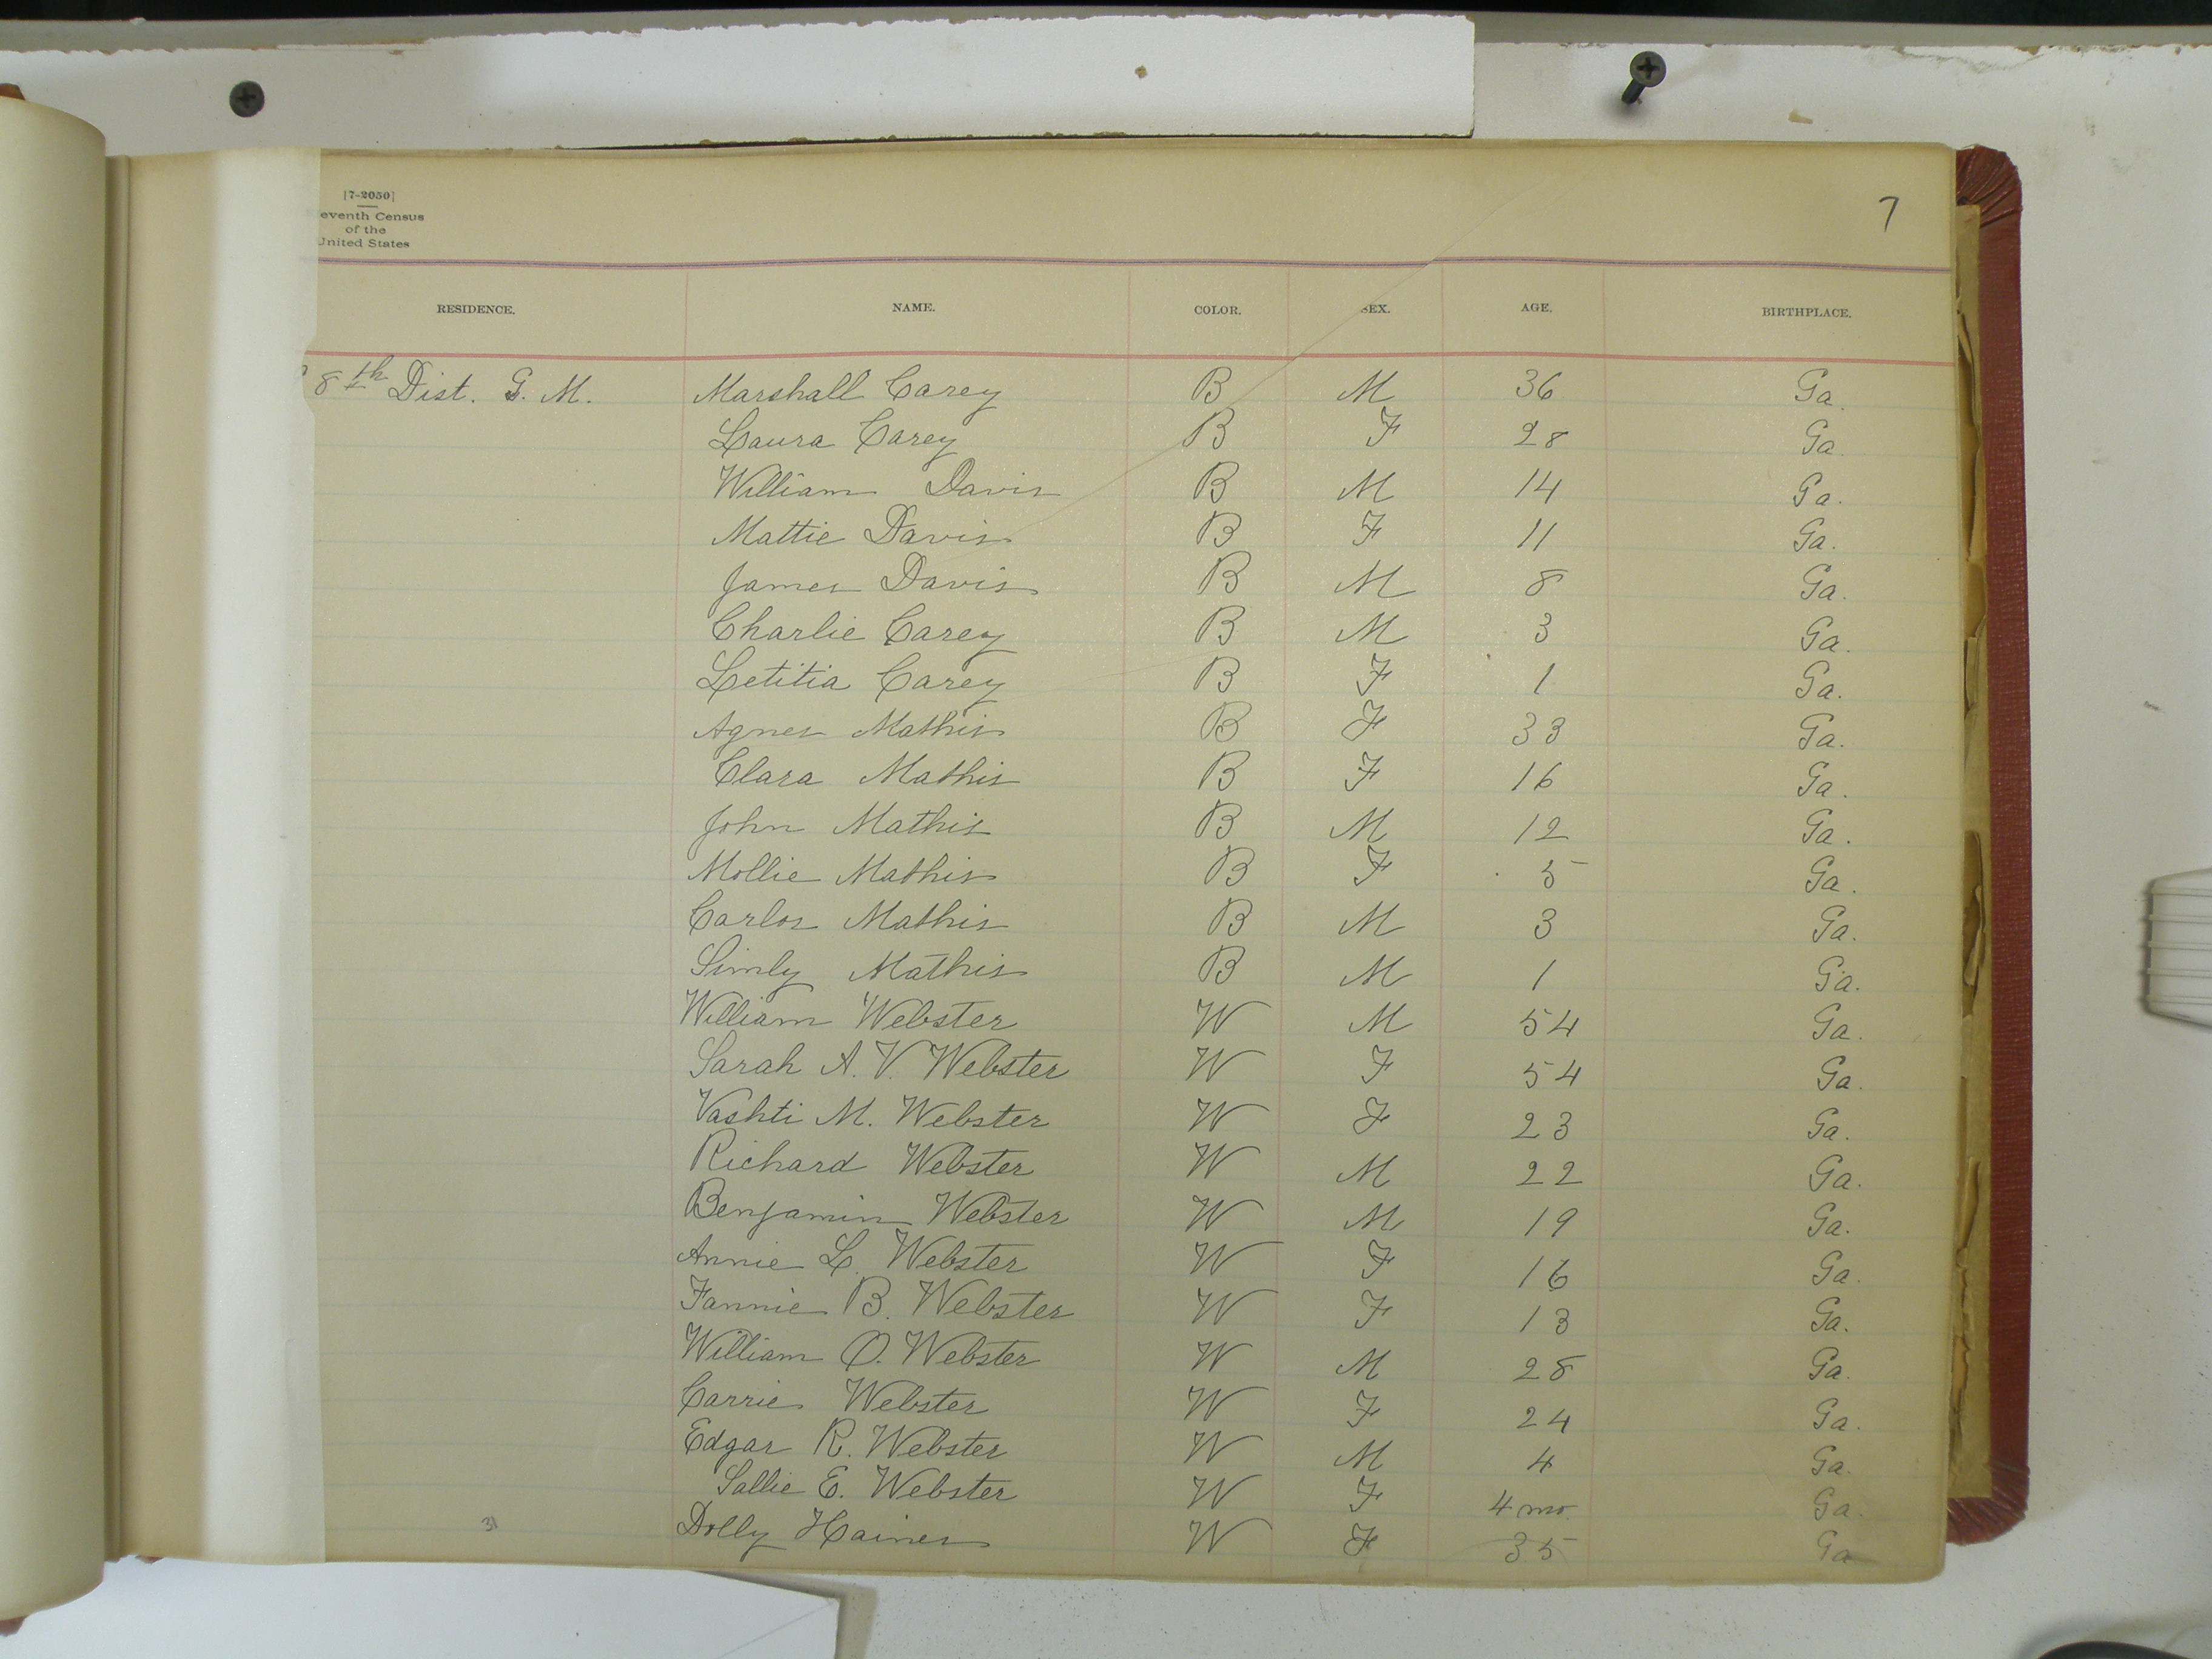 [7-2050]
eventh Census
of the
United States
7
RESIDENCE. NAME. COLOR. SEX. AGE. BIRTHPLACE.
8th Dist. G. M. Marshall Carey B M 36 Ga.
Laura Carey B F 28 Ga.
William Davis B M 14 Ga.
Mattie Davis B F 11 Ga.
James Davis B M 8 Ga.
Charlie Carey B M 3 Ga.
Letitia Carey B F 1 Ga.
Agnes Mathis B F 33 Ga.
Clara Mathis B F 16 Ga.
John Mathis B M 12 Ga.
Mollie Mathis B F 5 Ga.
Carlos Mathis B M 3 Ga.
Simly Mathis B M 1 Ga.
William Webster W M 54 Ga.
Sarah A. V. Webster W F 54 Ga.
Vashti M. Webster W F 23 Ga.
Richard Webster W M 22 Ga.
Benjamin Webster W M 19 Ga.
Annie L. Webster W F 16 Ga.
Fannie B. Webster W F 13 Ga.
William O. Webster W M 28 Ga.
Carrie Webster W F 24 Ga.
Edgar R. Webster W M 4 Ga.
Sallie E. Webster W F 4 mo. Ga.
31 Dolly Haines W F 35 Ga